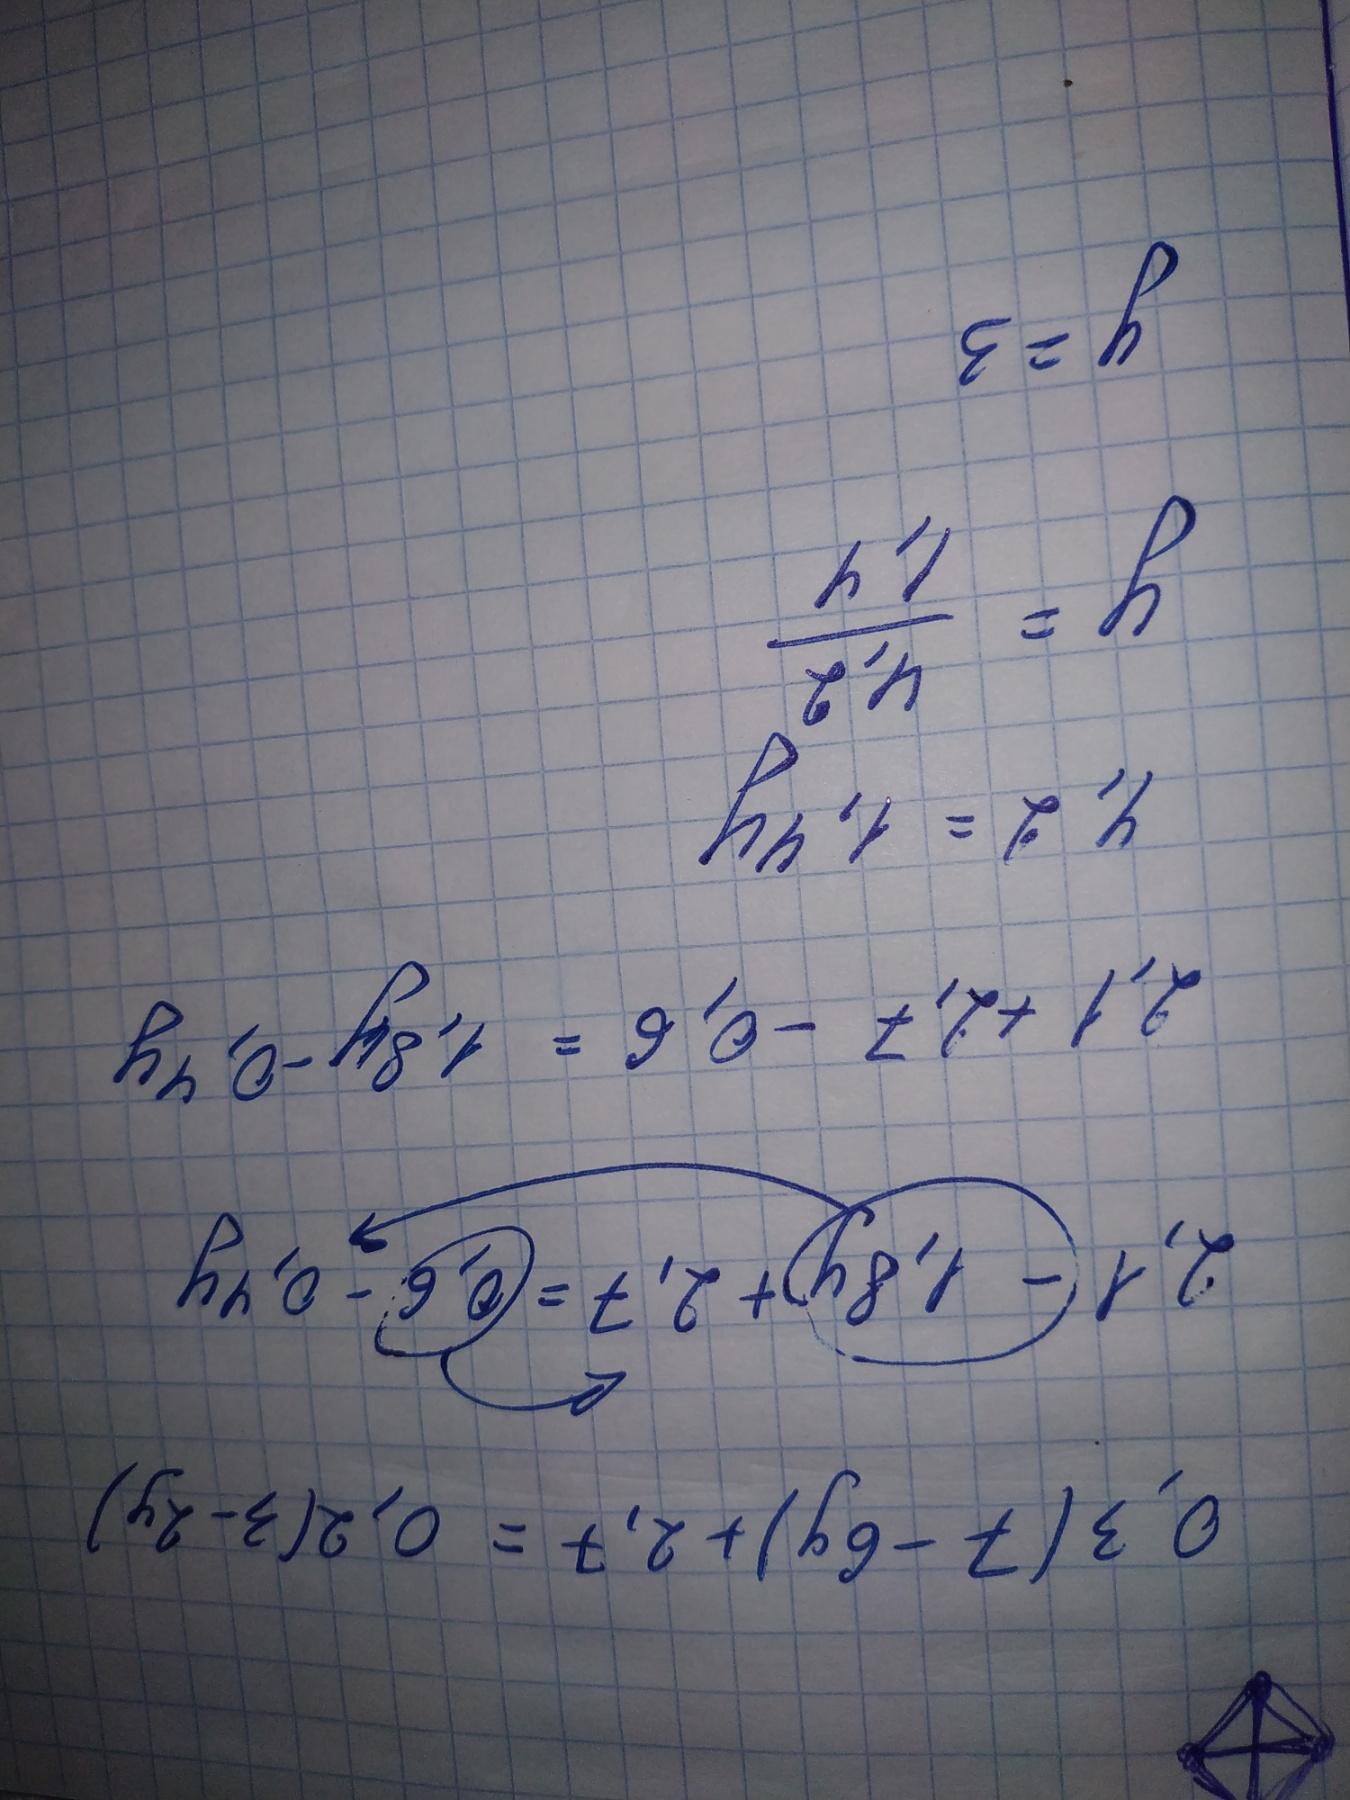 0,3(7-6y)+2,7=0,2(3-2y)
2,1-1,8y+2,7=0,6-0,4y
2,1+2,7-0,6=1,8y-0,4y
4,2=1,4y
y=4,2/1,4
y=3